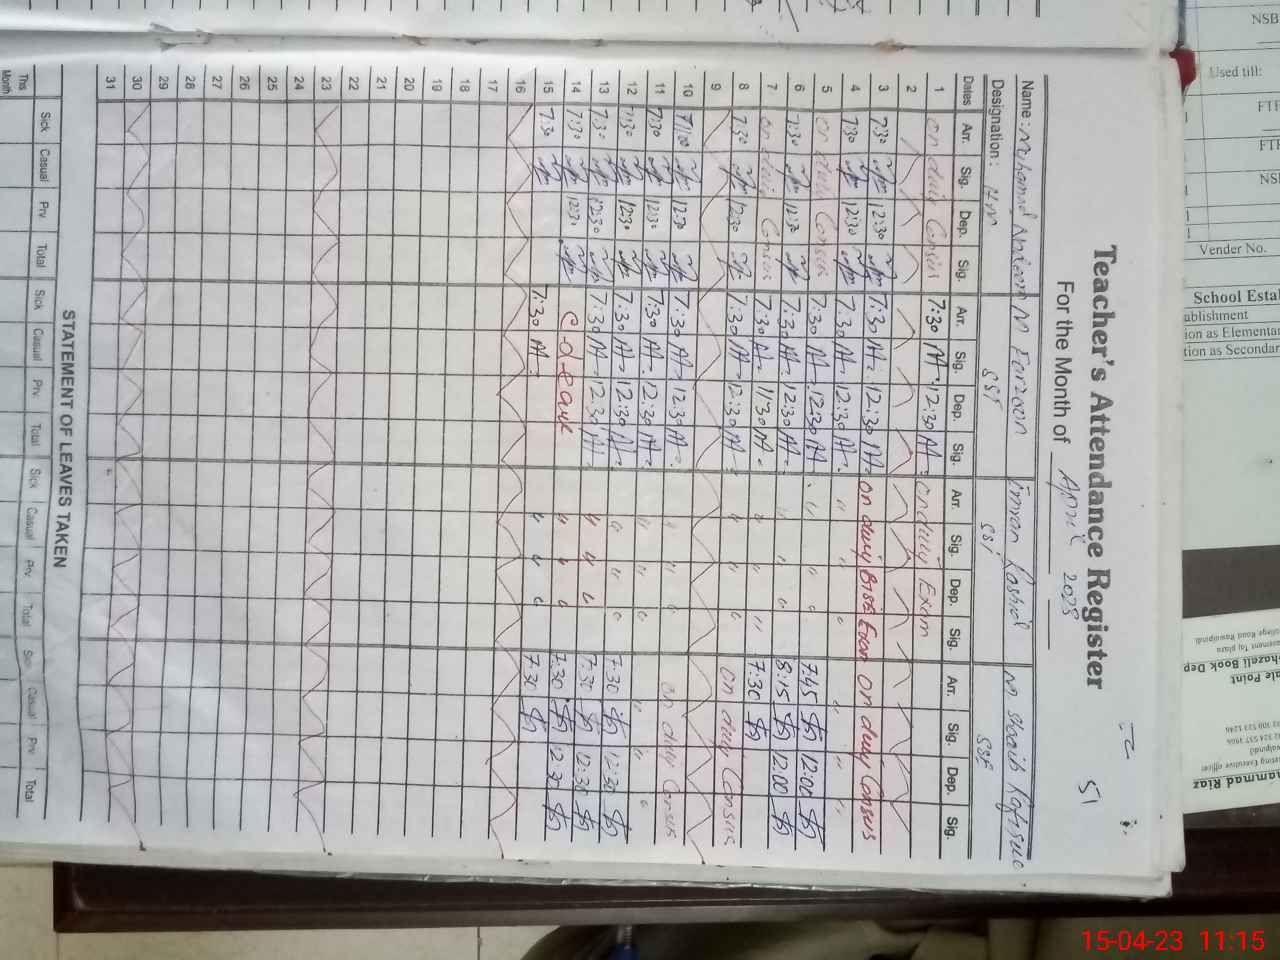 Teacher's Attendance Register
51
For the Month of April 2023
Name: M Farzoon Imran Rashid M Shoaib
Designation: HM SST SST SSE
Dates Arr. Sig. Dep. Sig. Arr. Sig. Dep. Sig. Arr. Sig. Dep. Sig. Arr. Sig. Dep. Sig.
1 on duty Census 7:30 12:30 on duty Exam
2
3 7:30 12:30 7:30 12:30 on duty BISE Exam on duty Census
4 7:30 12:30 7:30 12:30 " " " " " "
5 on duty Census 7:30 12:30 " " " 7:45 12:00
6 7:30 12:30 7:30 12:30 " " " 8:15 12:00
7 on duty Census 7:30 11:30 " " " 7:30
8 7:30 12:30 7:30 12:30 " " " on duty Census
9
10 7:00 12:30 7:30 12:30 " " " on duty Census
11 7:30 12:30 7:30 12:30 " " " " " "
12 7:30 12:30 7:30 12:30 " " " 7:30 12:30
13 7:30 12:30 7:30 12:30 " " " 7:30 12:30
14 7:30 12:30 C-Leave " " " 7:30 12:30
15 7:30 7:30 " " " 7:30
16
17
18
19
20
21
22
23
24
25
26
27
28
29
30
31
STATEMENT OF LEAVES TAKEN
Sick Casual Prv Total Sick Casual Prv Total Sick Casual Prv Total Casual Prv Total
This Month
NSB
Used till:
FTF
FTF
NSB
Vender No.
School Estal
ablishment
ion as Elementar
tion as Secondar
ammad Riaz
eting Executive officer
ale Point
hazeli Book Dep
asement Taj plaza
ollege Road Rawalpindi
15-04-23 11:15